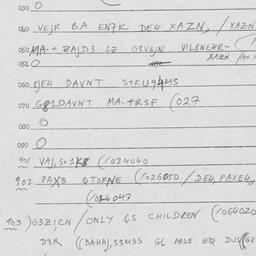 030 O
040 VEJR BA EN7K DE4 XAZN, /XAZN
050 MA-+ BAJD3 1Z G3VEJN VILBNEHR-
XAZN
051 O
060 EJE4 DAVNT S+KU94M3
070 G81DAVNT MA-+R3F (027
080 O
090 O
901 VAJ, S+1K8 (/024040
902 PAX3 QTORNE (/026050 / DE4, PAXE4,
(/026043
903 )G3Z1CN / ONLY 4S CHILDREN (/064020
D3R ((BAHAJ, S3MSS GL ABSE EQ